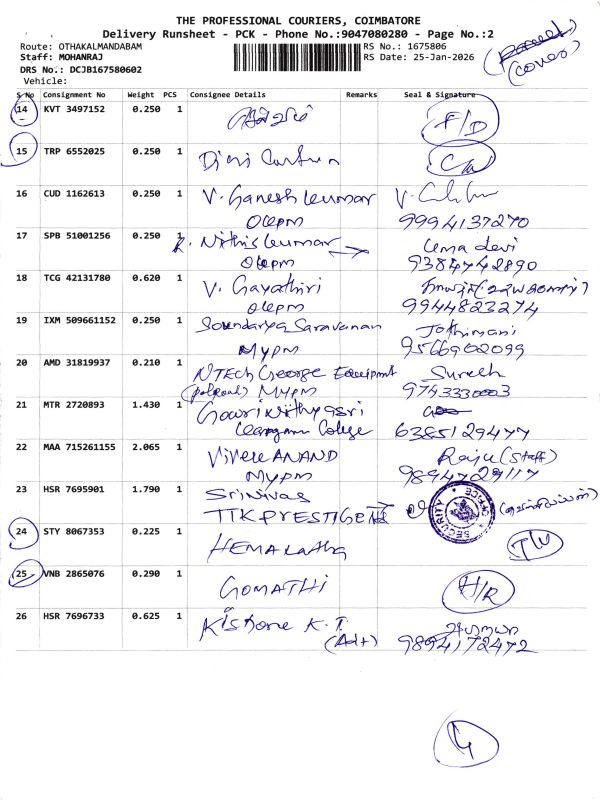 THE PROFESSIONAL COURIERS, COIMBATORE
Delivery Runsheet - PCK - Phone No.:9047080280 - Page No.:2
Route: OTHAKALMANDABAM
RS No.: 1675806
Staff: MOHANRAJ
RS Date: 25-Jan-2026
(cover)
DRS No.: DCJB167580602
Vehicle:
S No Consignment No Weight PCS Consignee Details Remarks Seal & Signature
14 KVT 3497152 0.250 1 F/D
15 TRP 6552025 0.250 1
16 CUD 1162613 0.250 1 V. Ganesh kumar
OKPM 9994137270
17 SPB 51001256 0.250 1 R. Nithis kumar → Uma devi
OKPM 9384742890
18 TCG 42131780 0.620 1 V. Gayathiri
OKPM 9944823274
19 IXM 509661152 0.250 1 Soundarya Saravanan Jothimani
MYPM 9566902099
20 AMD 31819937 0.210 1 NTECH George Equipment Suresh
MYPM 9743330003
21 MTR 2720893 1.430 1 Gowri Nithyasri
College 6385129477
22 MAA 715261155 2.065 1 Vivek ANAND Raju (Staff)
MYPM 9894729117
23 HSR 7695901 1.790 1 Srinivas
TTK PRESTIGE SECURITY OFFICE
24 STY 8067353 0.225 1 HEMALatha
25 VNB 2865076 0.290 1 GOMATHI H/R
26 HSR 7696733 0.625 1 Kishore K.T.
9894172472
4